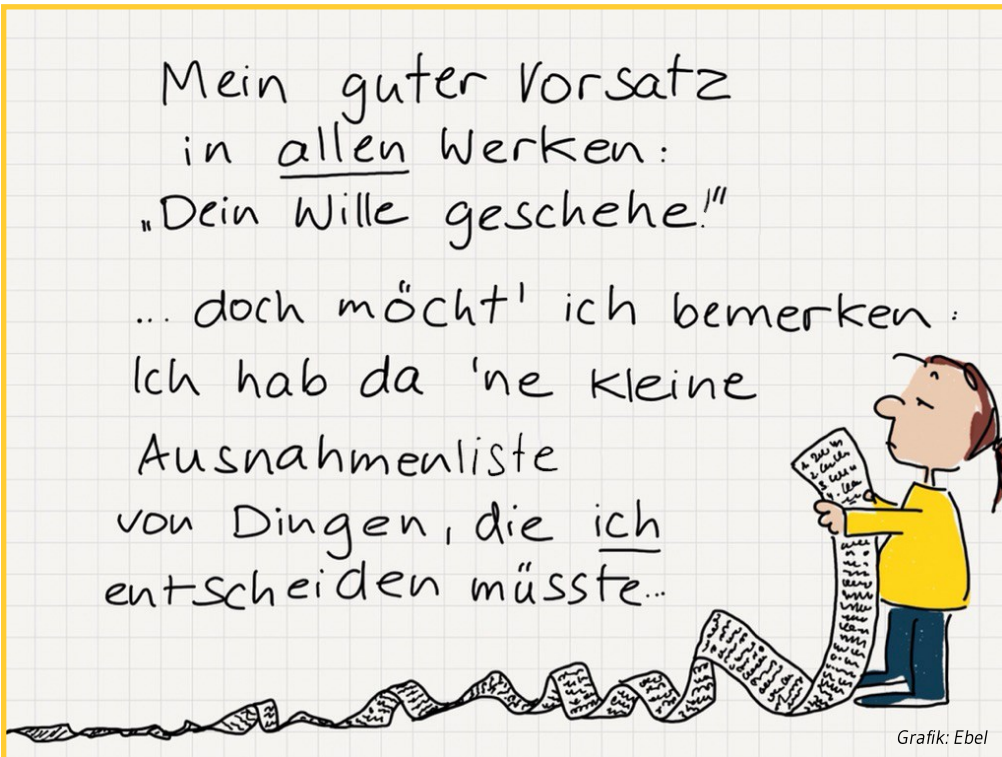 Mein guter Vorsatz
in allen Werken:
„Dein Wille geschehe!"
... doch möcht' ich bemerken:
Ich hab da 'ne kleine
Ausnahmenliste
von Dingen, die ich
entscheiden müsste...
Grafik: Ebel